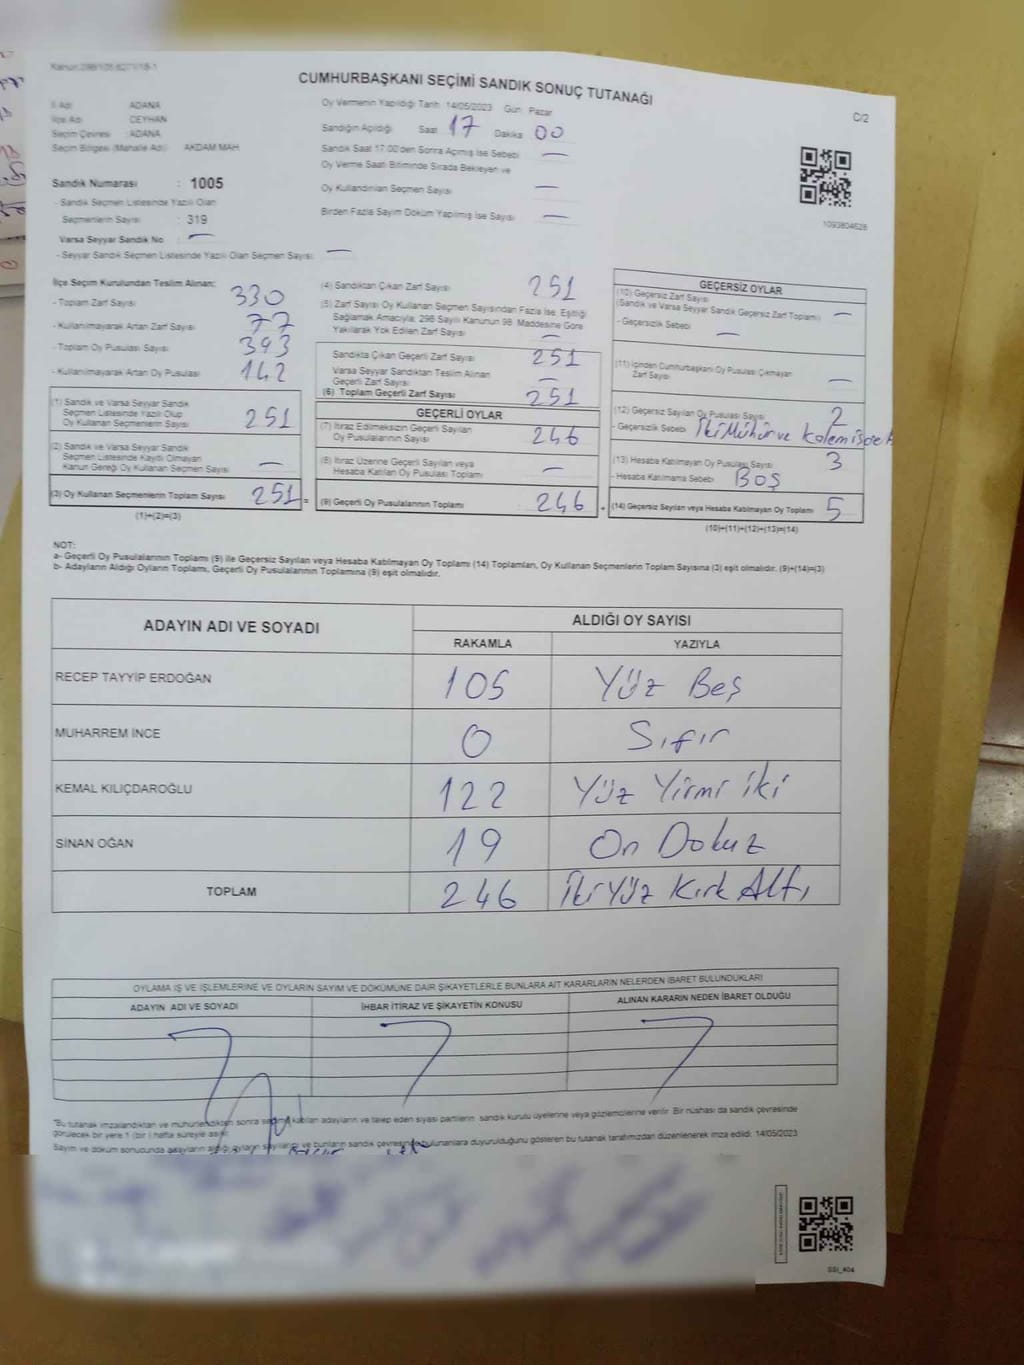 Kanun:298/105 6271/18-1
CUMHURBAŞKANI SEÇİMİ SANDIK SONUÇ TUTANAĞI
C/2
İl Adı : ADANA
İlçe Adı : CEYHAN
Seçim Çevresi : ADANA
Seçim Bölgesi (Mahalle Adı) : AKDAM MAH
Sandık Numarası : 1005
- Sandık Seçmen Listesinde Yazılı Olan
Seçmenlerin Sayısı : 319
Varsa Seyyar Sandık No : —
- Seyyar Sandık Seçmen Listesinde Yazılı Olan Seçmen Sayısı : —
Oy Vermenin Yapıldığı Tarih: 14/05/2023 Gün: Pazar
Sandığın Açıldığı Saat 17 Dakika 00
Sandık Saat 17.00'den Sonra Açılmış İse Sebebi —
Oy Verme Saati Bitiminde Sırada Bekleyen ve
Oy Kullandırılan Seçmen Sayısı —
Birden Fazla Sayım Döküm Yapılmış İse Sayısı —
1093804628
İlçe Seçim Kurulundan Teslim Alınan;
- Toplam Zarf Sayısı 330
- Kullanılmayarak Artan Zarf Sayısı 77
- Toplam Oy Pusulası Sayısı 393
- Kullanılmayarak Artan Oy Pusulası 142
(1) Sandık ve Varsa Seyyar Sandık
Seçmen Listesinde Yazılı Olup
Oy Kullanan Seçmenlerin Sayısı 251
(2) Sandık ve Varsa Seyyar Sandık
Seçmen Listesinde Kayıtlı Olmayan
Kanun Gereği Oy Kullanan Seçmen Sayısı —
(3) Oy Kullanan Seçmenlerin Toplam Sayısı 251 =
(1)+(2)=(3)
(4) Sandıktan Çıkan Zarf Sayısı 251
(5) Zarf Sayısı Oy Kullanan Seçmen Sayısından Fazla İse, Eşitliği
Sağlamak Amacıyla; 298 Sayılı Kanunun 98. Maddesine Göre
Yakılarak Yok Edilen Zarf Sayısı —
Sandıkta Çıkan Geçerli Zarf Sayısı 251
Varsa Seyyar Sandıktan Teslim Alınan
Geçerli Zarf Sayısı —
(6) Toplam Geçerli Zarf Sayısı 251
GEÇERLİ OYLAR
(7) İtiraz Edilmeksizin Geçerli Sayılan
Oy Pusulalarının Sayısı 246
(8) İtiraz Üzerine Geçerli Sayılan veya
Hesaba Katılan Oy Pusulası Toplamı —
(9) Geçerli Oy Pusulalarının Toplamı : 246 +
GEÇERSİZ OYLAR
(10) Geçersiz Zarf Sayısı
(Sandık ve Varsa Seyyar Sandık Geçersiz Zarf Toplamı) —
- Geçersizlik Sebebi : —
(11) İçinden Cumhurbaşkanı Oy Pusulası Çıkmayan
Zarf Sayısı —
(12) Geçersiz Sayılan Oy Pusulası Sayısı 2
- Geçersizlik Sebebi : İki Mühür ve
(13) Hesaba Katılmayan Oy Pusulası Sayısı 3
- Hesaba Katılmama Sebebi : BOŞ
(14) Geçersiz Sayılan veya Hesaba Katılmayan Oy Toplamı 5
(10)+(11)+(12)+(13)=(14)
NOT:
a- Geçerli Oy Pusulalarının Toplamı (9) ile Geçersiz Sayılan veya Hesaba Katılmayan Oy Toplamı (14) Toplamları, Oy Kullanan Seçmenlerin Toplam Sayısına (3) eşit olmalıdır. (9)+(14)=(3)
b- Adayların Aldığı Oyların Toplamı, Geçerli Oy Pusulalarının Toplamına (9) eşit olmalıdır.
ADAYIN ADI VE SOYADI
ALDIĞI OY SAYISI
RAKAMLA YAZIYLA
RECEP TAYYİP ERDOĞAN 105 Yüz Beş
MUHARREM İNCE 0 Sıfır
KEMAL KILIÇDAROĞLU 122 Yüz Yirmi iki
SİNAN OĞAN 19 On Dokuz
TOPLAM 246 İki Yüz Kırk Altı
OYLAMA İŞ VE İŞLEMLERİNE VE OYLARIN SAYIM VE DÖKÜMÜNE DAİR ŞİKAYETLERLE BUNLARA AİT KARARLARIN NELERDEN İBARET BULUNDUKLARI
ADAYIN ADI VE SOYADI İHBAR İTİRAZ VE ŞİKAYETİN KONUSU ALINAN KARARIN NEDEN İBARET OLDUĞU
"Bu tutanak imzalandıktan ve mühürlendikten sonra seçime katılan adayların ve talep eden siyasi partilerin sandık kurulu üyelerine veya gözlemcilerine verilir. Bir nüshası da sandık çevresinde
görülecek bir yere 1 (bir) hafta süreyle asılır.
Sayım ve döküm sonucunda adayların aldığı oyların sayılarını ve bunların sandık çevresinde bulunanlara duyurulduğunu gösteren bu tutanak tarafımızdan düzenlenerek imza edildi. 14/05/2023
SSI_404